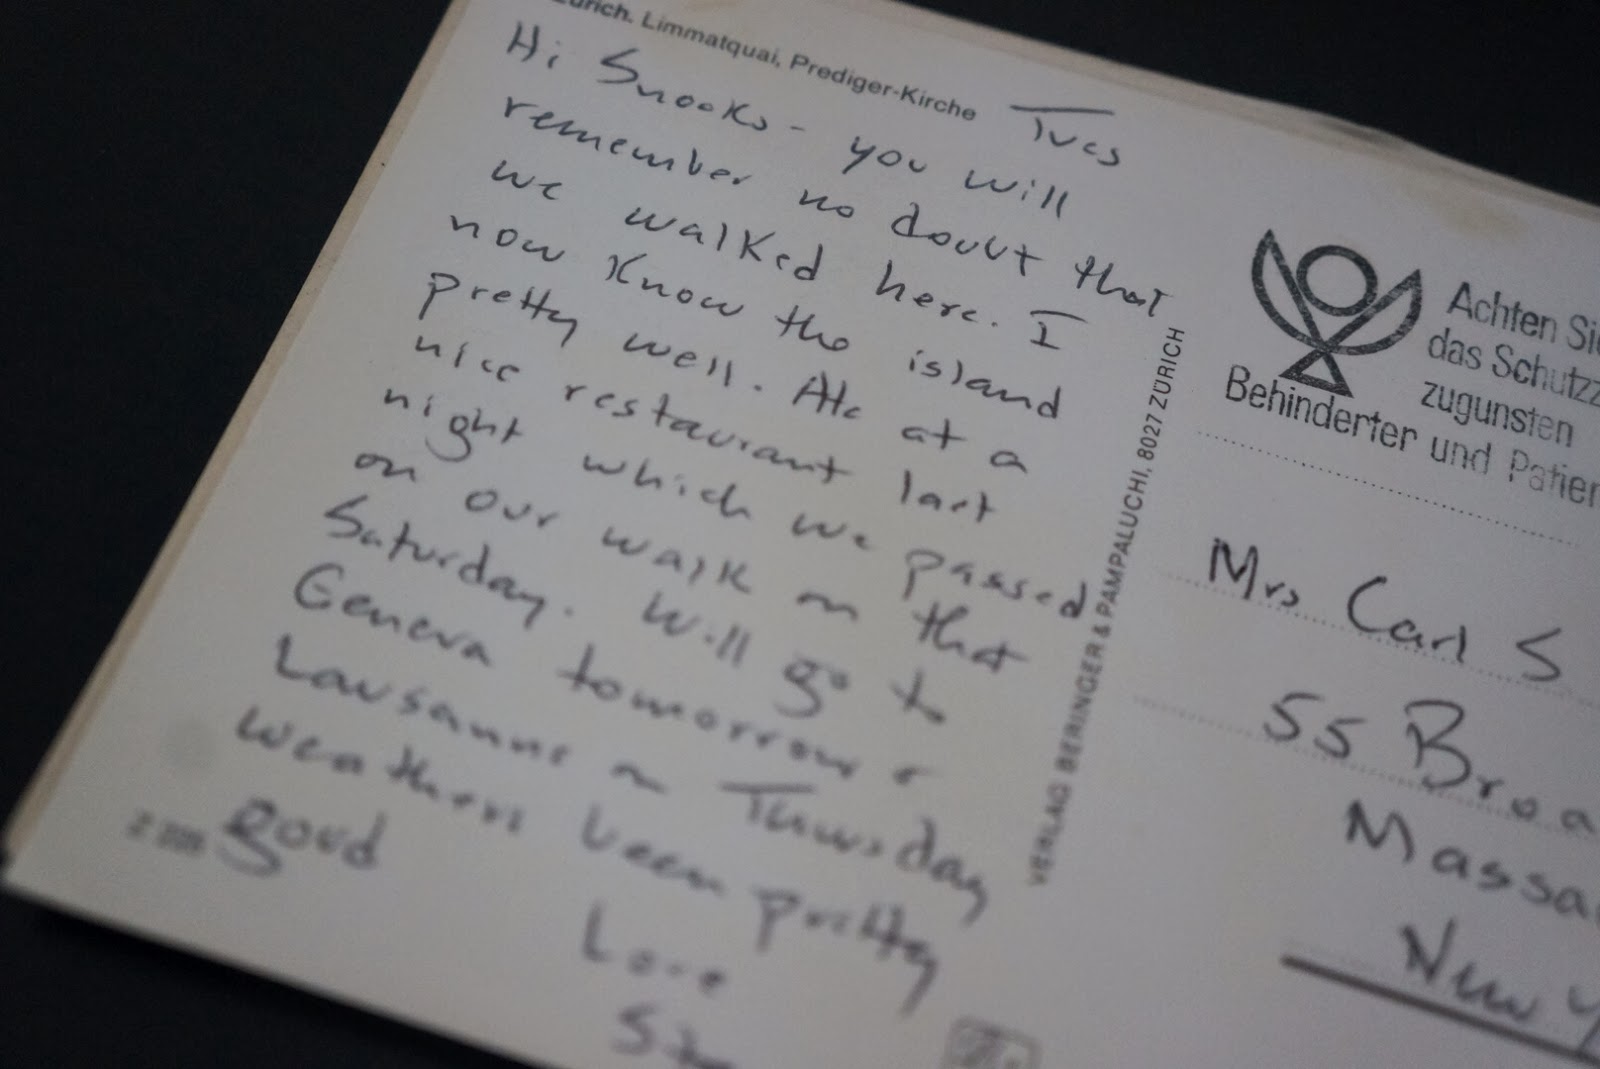 Zürich. Limmatquai, Prediger-Kirche
Tues
Hi Snooks - you will
remember no doubt that
we walked here. I
now know the island
pretty well. Ate at a
nice restaurant last
night which we passed
on our walk on that
Saturday. Will go to
Geneva tomorrow &
Lausanne on Thursday
weathers been pretty
good
Love
VERLAG BERINGER & PAMPALUCHI, 8027 ZÜRICH
Achten Sie
das Schutzz
zugunsten
Behinderter und Patien
Mrs Carl S
55 Broa
Massa
New Y